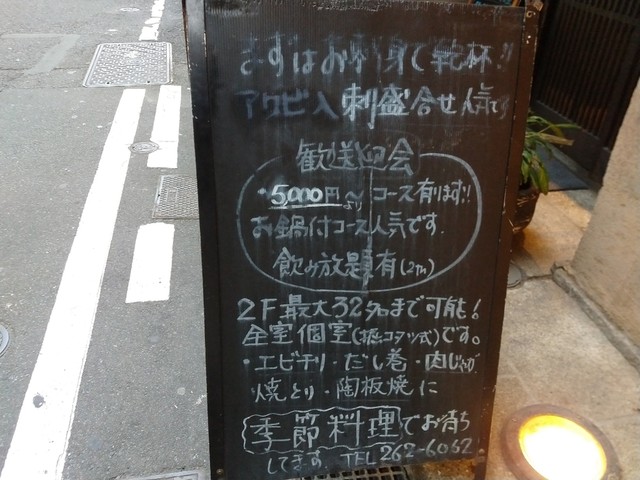 まずはお刺身で乾杯!!
アワビ入刺盛合せ人気です
歓送迎会
・5,000円〜より コース有ります!!
お鍋付コース人気です.
飲み放題有(2h)
2F最大32名まで可能!
全室個室(掘コタツ式)です。
・エビチリ・だし巻・肉じゃが
焼とり・陶板焼に
季節料理でお待ち
してます TEL 262-6062